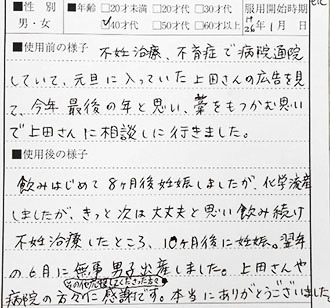 ■性 別 ■年齢 □20才未満 □20才代 □30才代 服用開始時期
男・女 ☑40才代 □50才代 □60才以上 26年1月
■使用前の様子 不妊治療、不育症で病院通院
していて、元旦に入っていた上田さんの広告を見
て、今年最後の年と思い、藁をもつかむ思い
で上田さんに相談しに行きました。
■使用後の様子
飲みはじめて8ヶ月後妊娠しましたが、化学流産
しましたが、きっと次は大丈夫と思い飲み続け
不妊治療したところ、10ヶ月後に妊娠。翌年
の6月に無事男子出産しました。上田さんや
その他応援してくださった方々
病院の方々に感謝です。本当にありがとうございました